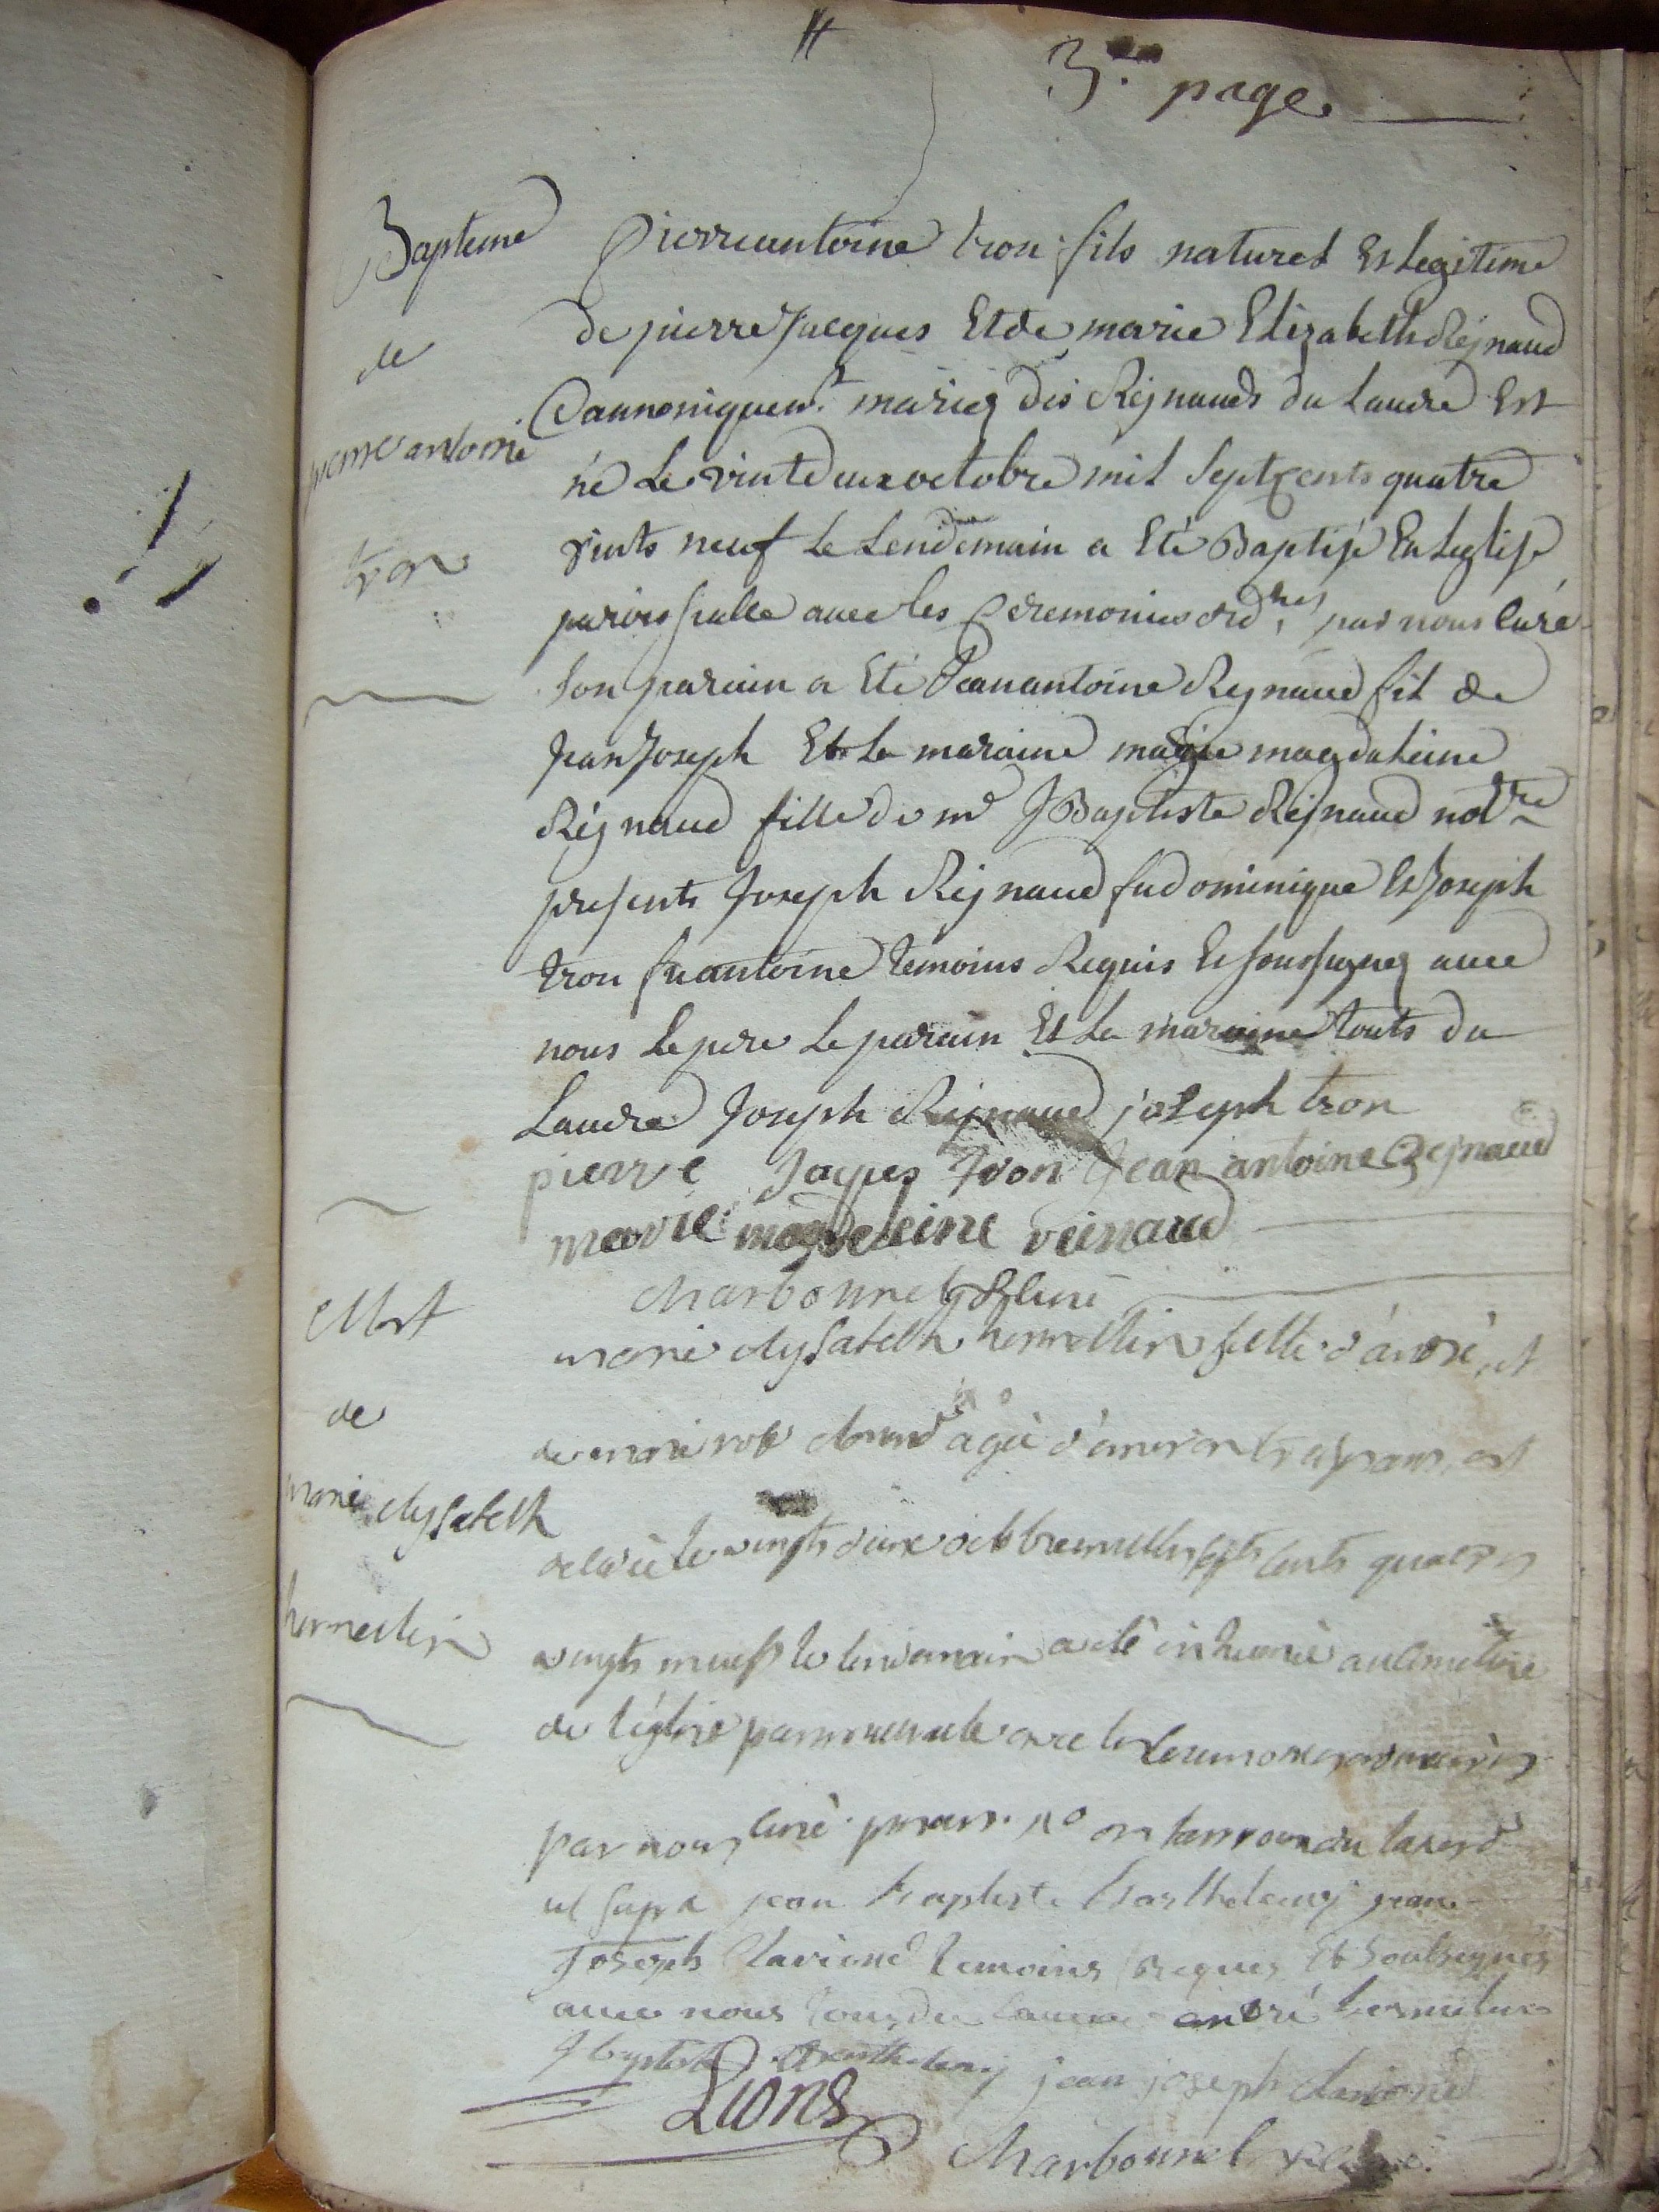 3.e page.
Bapteme
de
pierre antoine
tron
Pierre antoine tron fils naturel Et Legitime
de pierre Jacques Et de marie Elizabeth Reynaud
Cannoniquemt mariez des Reynauds du Lauzet Est
né Le vint deux octobre mil Sept Cents quatre
vints neuf Le Lendemain a Eté Baptisé En Leglise
paroissialle avec les Ceremonies ordres par nous Curé
Son parain a Eté Jean antoine Reynaud fil de
Jean Joseph Et La maraine marie magdaleine
Reynaud fille de me J Baptiste Reynaud notre
presents Joseph Reynaud fu dominique Et Joseph
tron fu antoine temoins Requis Et Soussignez avec
nous Le pere Le parain Et La maraine touts du
Joseph Reynaud joseph tron
pierre Jaques tron Jean antoine Reynaud
marie magdeleine reinaud
Charbonnel Curé
Mort
de
marie elysabeth
hermellin
marie elysabeth hermellin fille d'andré, et
de marie agée d'environ trois ans, est
le vingts deux octobre mille sept cents quatre
vingts neuf le lendemain a eté inhumé au cimetiere
de l'église paroissiale avec les ceremonies ordinaires
par nous curé
ut supra jean baptiste barthelemy jean
Joseph Clariond temoins requis Et Soussignes
avec nous tous du andré hermelin
J baptiste Barthelemy jean joseph clariond
Lions
Charbonnel